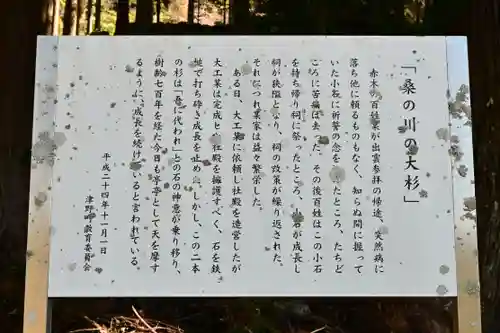 「桑の川の大杉」
赤木の百姓某が出雲参拝の帰途、突然病に
落ち他に頼るものもなく、知らぬ間に握って
いた小石に祈誓の念を したところ、たちど
ころに苦痛は去った。その後百姓はこの小石
を持ち帰り祠に祭ったところ、 石が成長し
祠が狭隘となり、祠の改築が繰り返された。
それにつれ某家は益々繁栄した。
ある日、大工某に依頼し社殿を造営したが
大工某は完成 社殿を擁護すべく、石を鉄
槌で打ち砕き成長を止め しかし、この二本
の杉は「吾に代われ」との石の神意が乗り移り、
樹齢七百年を経た今日も亭亭として天を摩す
るように、成長を続け ると言われている。
平成二十四年十一月一日
津野町教育委員会